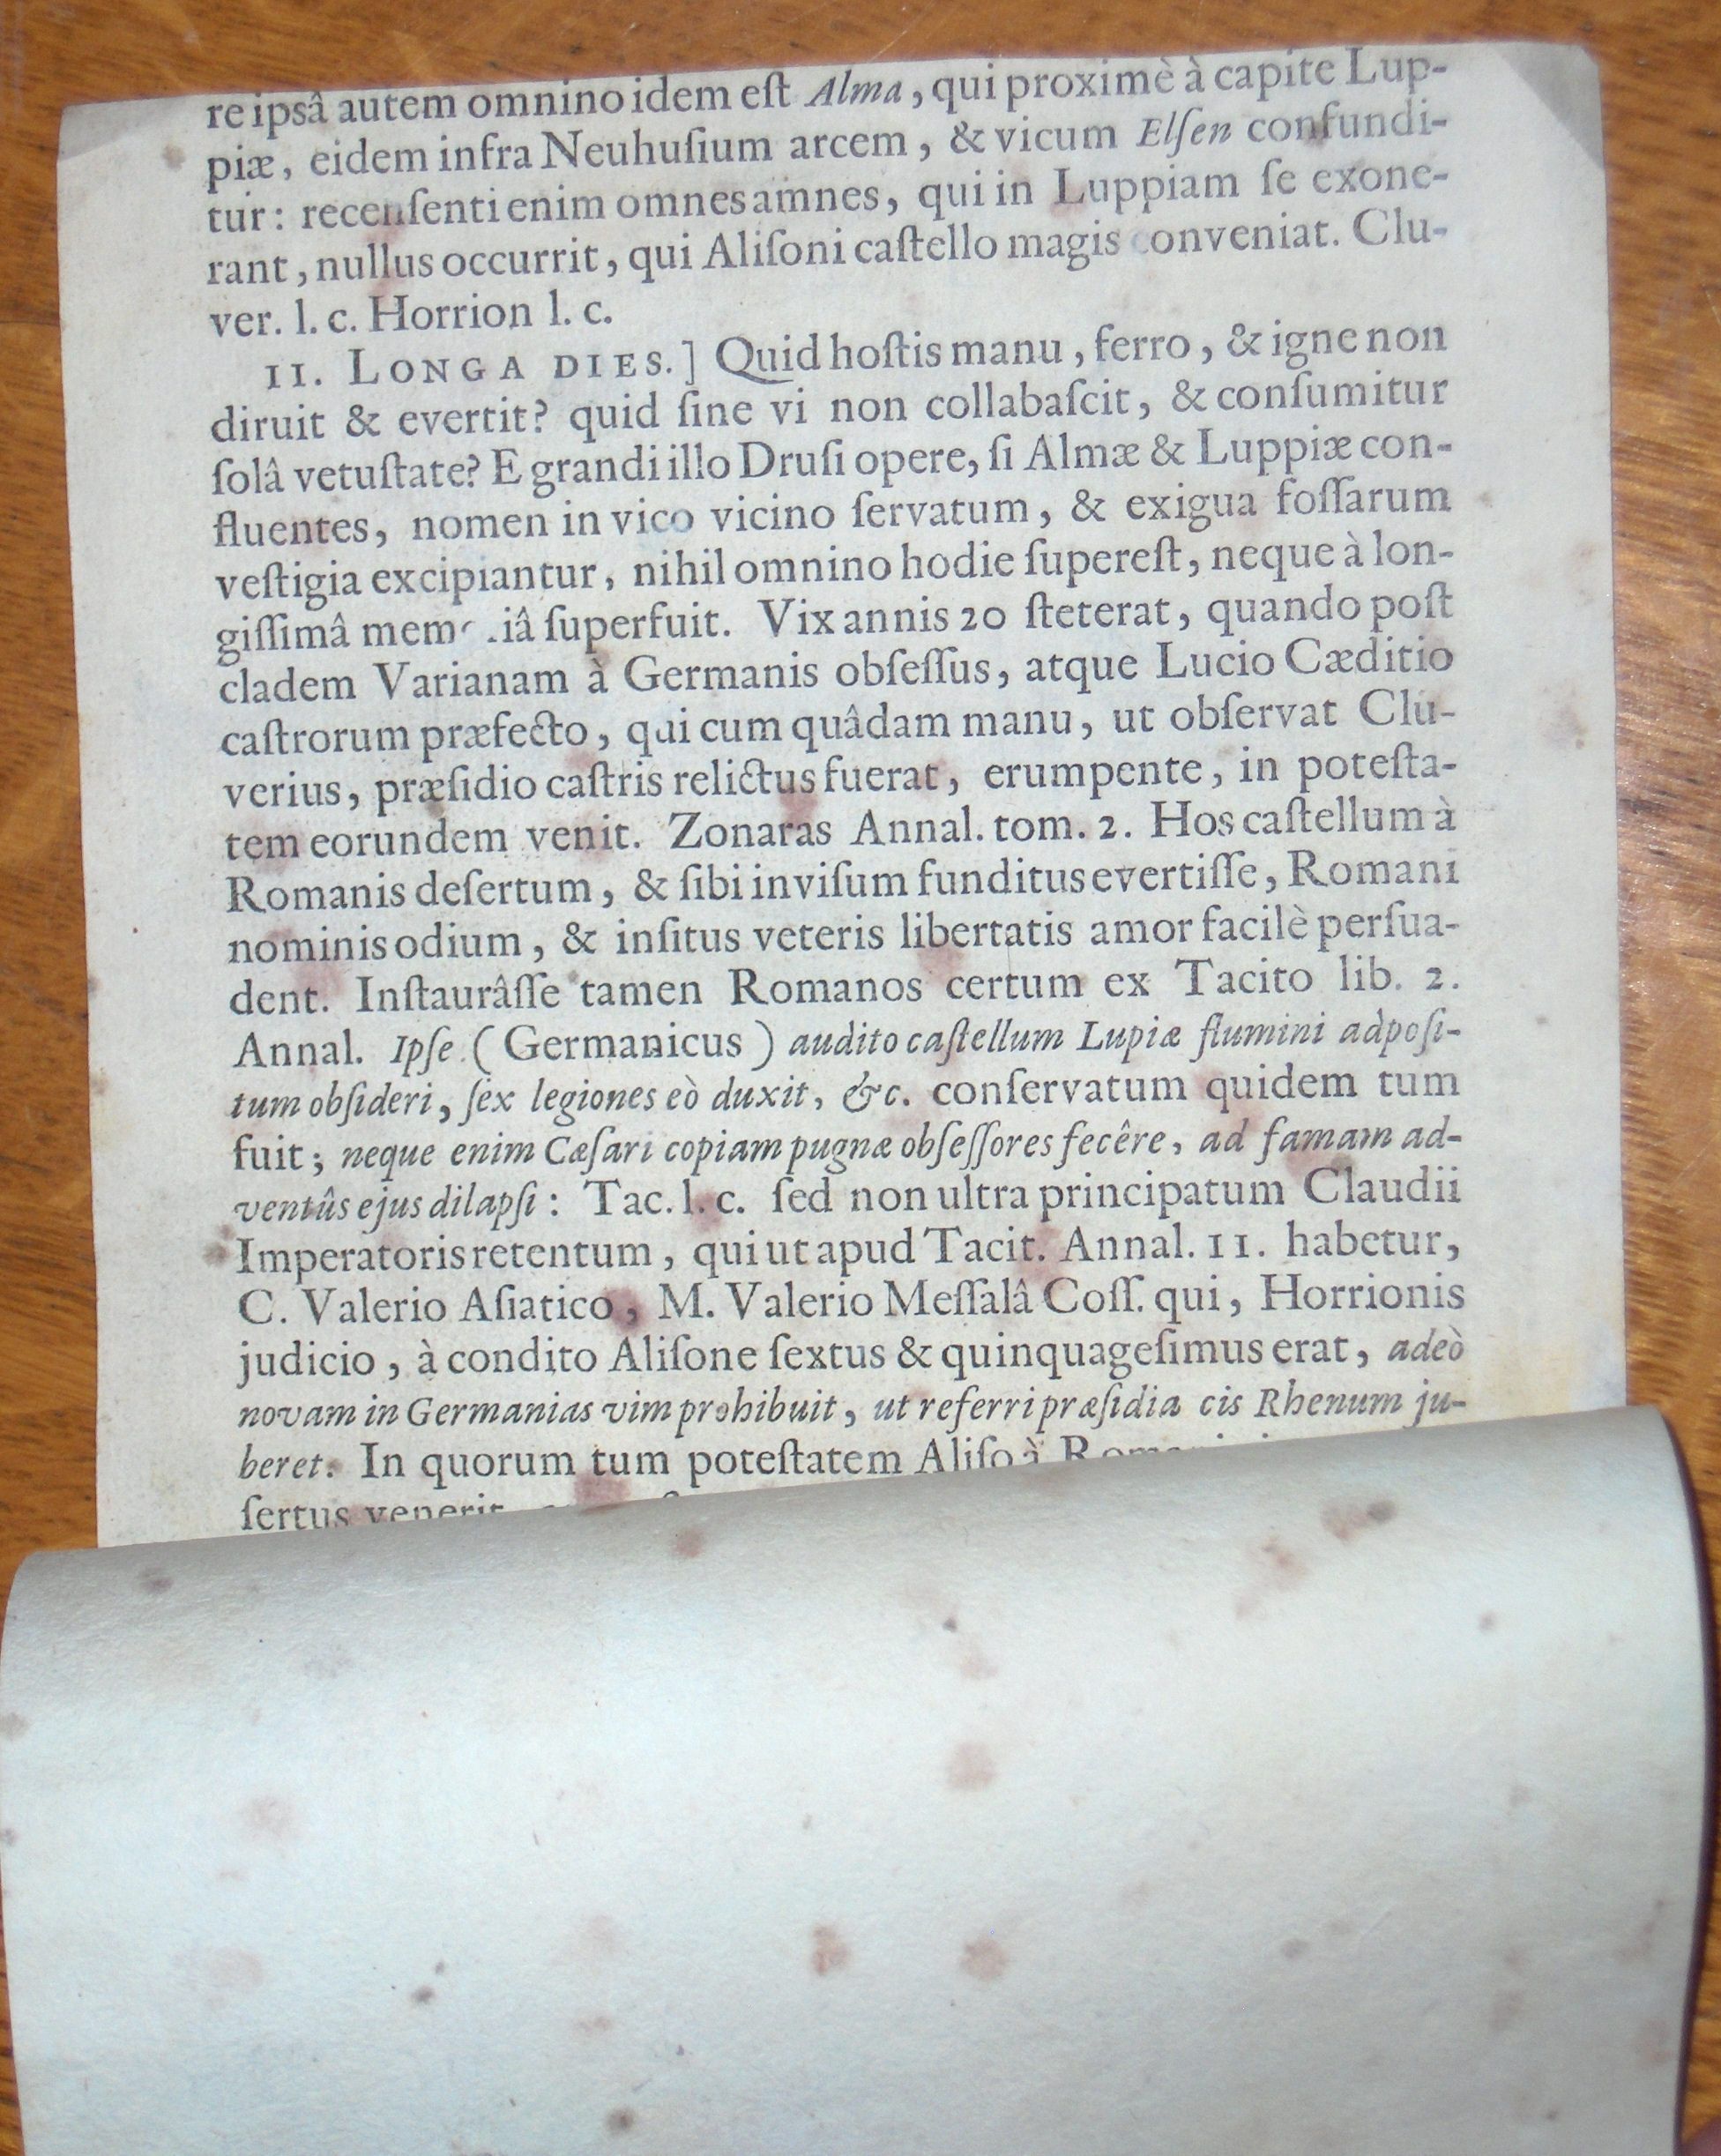 re ipsâ autem omnino idem eſt Alma, qui proximè à capite Lup-
piæ, eidem infra Neuhuſium arcem, & vicum Elſen confundi-
tur: recenſenti enim omnes amnes, qui in Luppiam ſe exone-
rant, nullus occurrit, qui Aliſoni caſtello magis conveniat. Clu-
ver. l. c. Horrion l. c.
11. LONGA DIES.] Quid hoſtis manu, ferro, & igne non
diruit & evertit? quid ſine vi non collabaſcit, & conſumitur
ſolâ vetuſtate? E grandi illo Druſi opere, ſi Almæ & Luppiæ con-
fluentes, nomen in vico vicino ſervatum, & exigua foſſarum
veſtigia excipiantur, nihil omnino hodie ſupereſt, neque à lon-
giſſimâ memoriâ ſuperfuit. Vix annis 20 ſteterat, quando poſt
cladem Varianam à Germanis obſeſſus, atque Lucio Cæditio
caſtrorum præfecto, qui cum quâdam manu, ut obſervat Clu-
verius, præſidio caſtris relictus fuerat, erumpente, in poteſta-
tem eorundem venit. Zonaras Annal. tom. 2. Hos caſtellum à
Romanis deſertum, & ſibi inviſum funditus evertiſſe, Romani
nominis odium, & inſitus veteris libertatis amor facilè perſua-
dent. Inſtaurâſſe tamen Romanos certum ex Tacito lib. 2.
Annal. Ipſe (Germanicus) audito caſtellum Lupiæ flumini adpoſi-
tum obſideri, ſex legiones eò duxit, &c. conſervatum quidem tum
fuit; neque enim Cæſari copiam pugnæ obſeſſores fecêre, ad famam ad-
ventûs ejus dilapſi: Tac. l. c. ſed non ultra principatum Claudii
Imperatoris retentum, qui ut apud Tacit. Annal. 11. habetur,
C. Valerio Aſiatico, M. Valerio Meſſalâ Coſſ. qui, Horrionis
judicio, à condito Aliſone ſextus & quinquageſimus erat, adeò
novam in Germanias vim prohibuit, ut referri præſidia cis Rhenum ju-
beret. In quorum tum poteſtatem Aliſo à
ſertus venerit